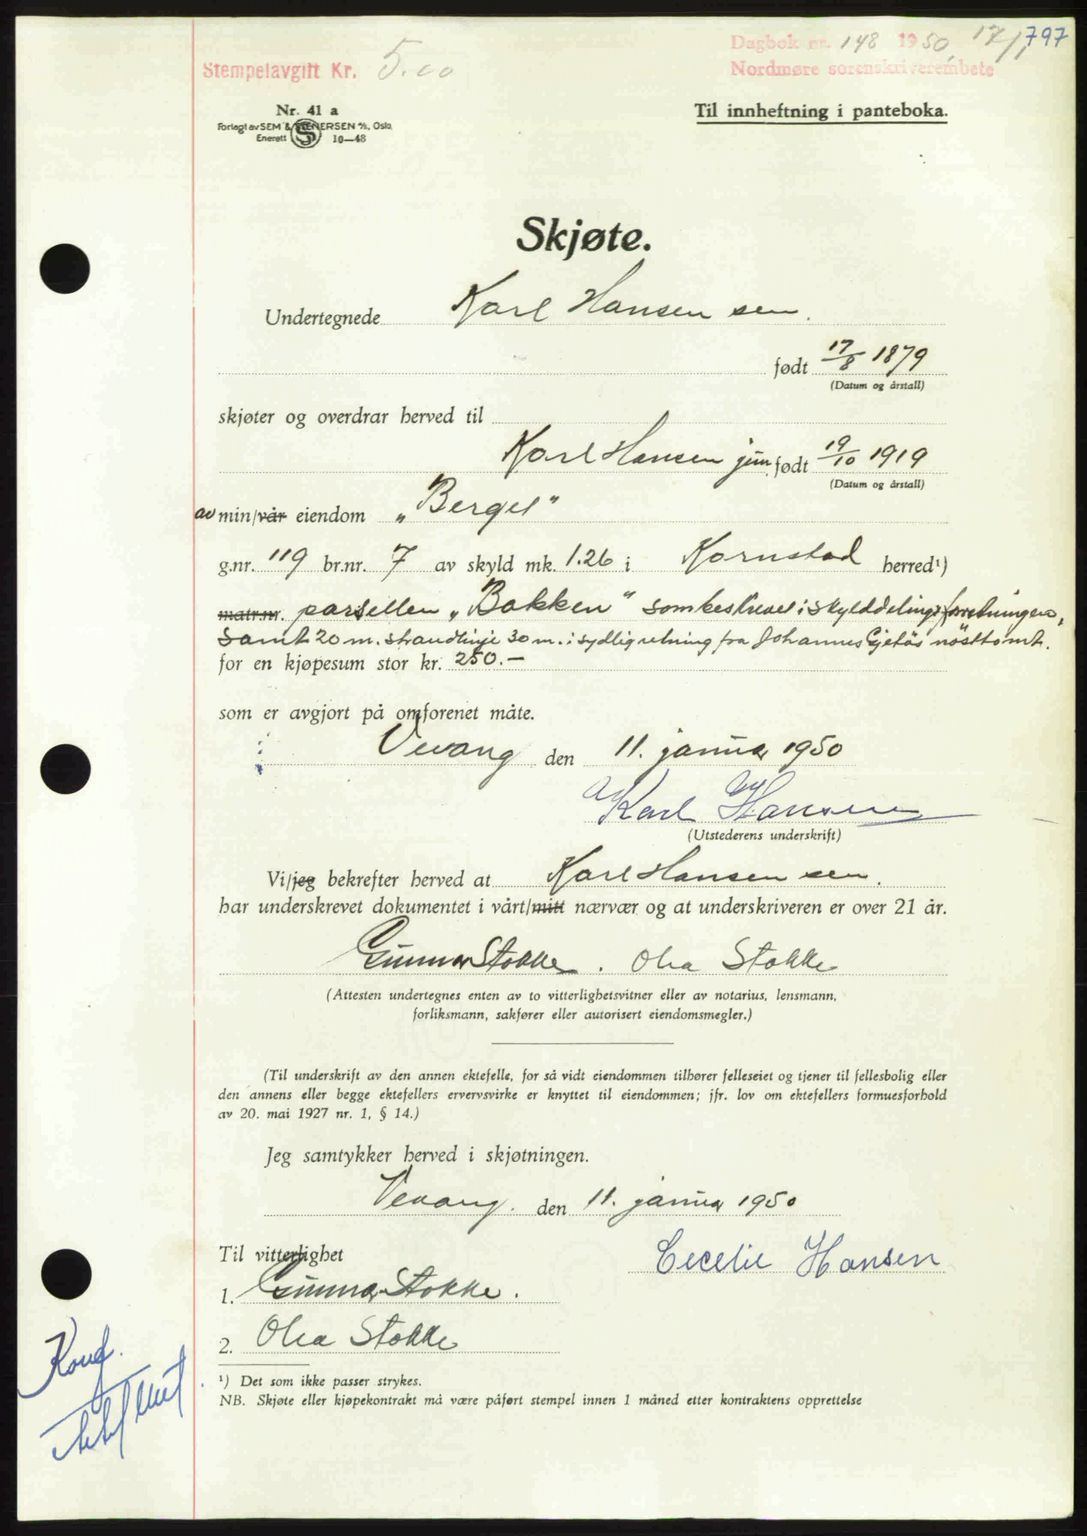 Stempelavgift Kr. 5.00
Dagbok nr. 148 1950, 17/1 797
Nordmøre sorenskriverembete
Nr. 41 a
Forlagt av SEM & STENERSEN A/S, Oslo.
Enerett S 10—48
Til innheftning i panteboka.
Skjøte.
Undertegnede Karl Hansen sen.
født 17/8 1879
(Datum og årstall)
skjøter og overdrar herved til
Karl Hansen jun. født 19/10 1919
(Datum og årstall)
av min/vår eiendom „Berget"
g.nr. 119 br.nr. 7 av skyld mk. 1.26 i Kornstad herred¹)
matr.nr. parsellen „Bakken" som beskrevet i skylddelingsforretningen,
samt 20 m. strandlinje 30 m. i sydlig retning fra Johannes Gjetøs nøsttomt.
for en kjøpesum stor kr. 250.—
som er avgjort på omforenet måte.
Vevang den 11. januar 1950
Karl Hansen
(Utstederens underskrift)
Vi/jeg bekrefter herved at Karl Hansen sen.
har underskrevet dokumentet i vårt/mitt nærvær og at underskriveren er over 21 år.
Gunnar Stokke. Olea Stokke
(Attesten undertegnes enten av to vitterlighetsvitner eller av notarius, lensmann,
forliksmann, sakfører eller autorisert eiendomsmegler.)
(Til underskrift av den annen ektefelle, for så vidt eiendommen tilhører felleseiet og tjener til fellesbolig eller
den annens eller begge ektefellers ervervsvirke er knyttet til eiendommen; jfr. lov om ektefellers formuesforhold
av 20. mai 1927 nr. 1, § 14.)
Jeg samtykker herved i skjøtningen.
Vevang. den 11. januar 1950
Til vitterlighet
Cecelie Hansen
1. Gunnar Stokke.
2. Olea Stokke
¹) Det som ikke passer strykes.
NB. Skjøte eller kjøpekontrakt må være påført stempel innen 1 måned etter kontraktens opprettelse